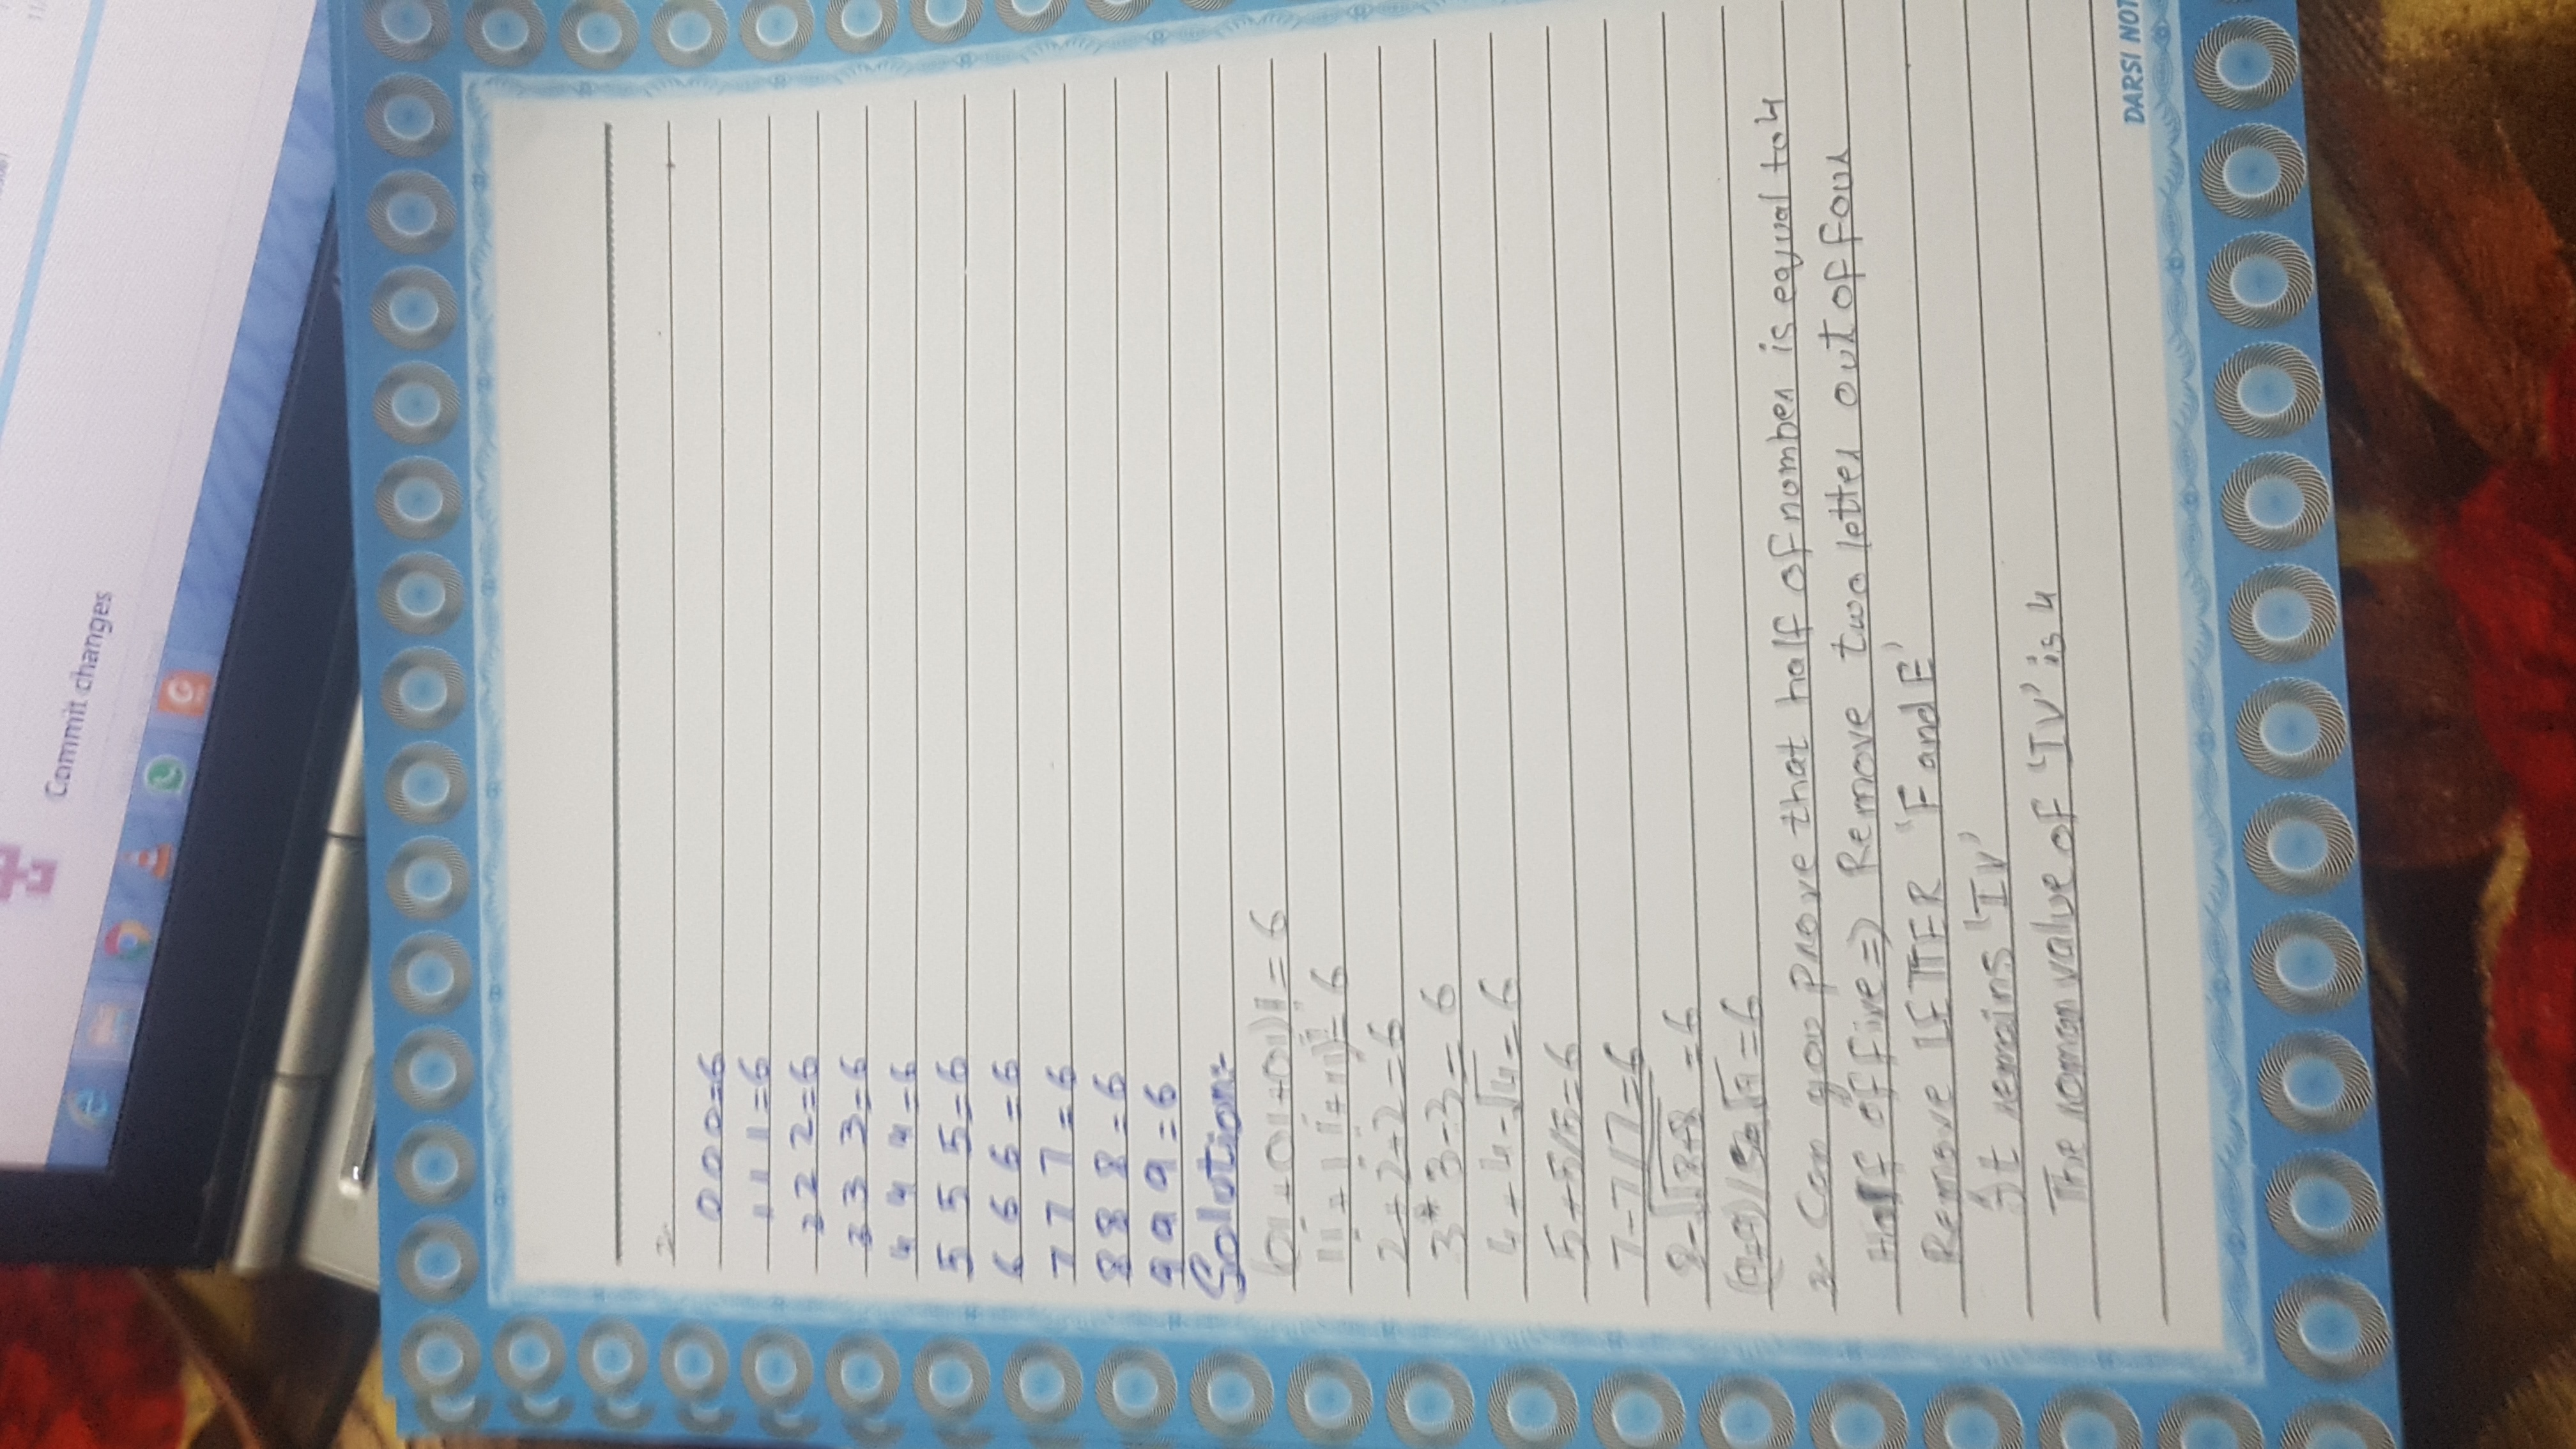 Commit changes
2-
0 0 0=6
1 1 1=6
2 2 2=6
3 3 3=6
4 4 4=6
5 5 5=6
6 6 6=6
7 7 7=6
8 8 8=6
9 9 9=6
Solution:-
(0!+0!+0!)!=6
2+2+2=6
3*3-3=6
4+4-√4=6
5+5/5=6
7-7/7=6
8-√√8+8=6
(9+9)/√9=6
Can you prove that half of number is equal to 4
Half of five=) Remove two letter out of four
Remove LETTER 'F and E'
It remains 'IV'
The roman value of 'IV' is 4
DARSI NOT